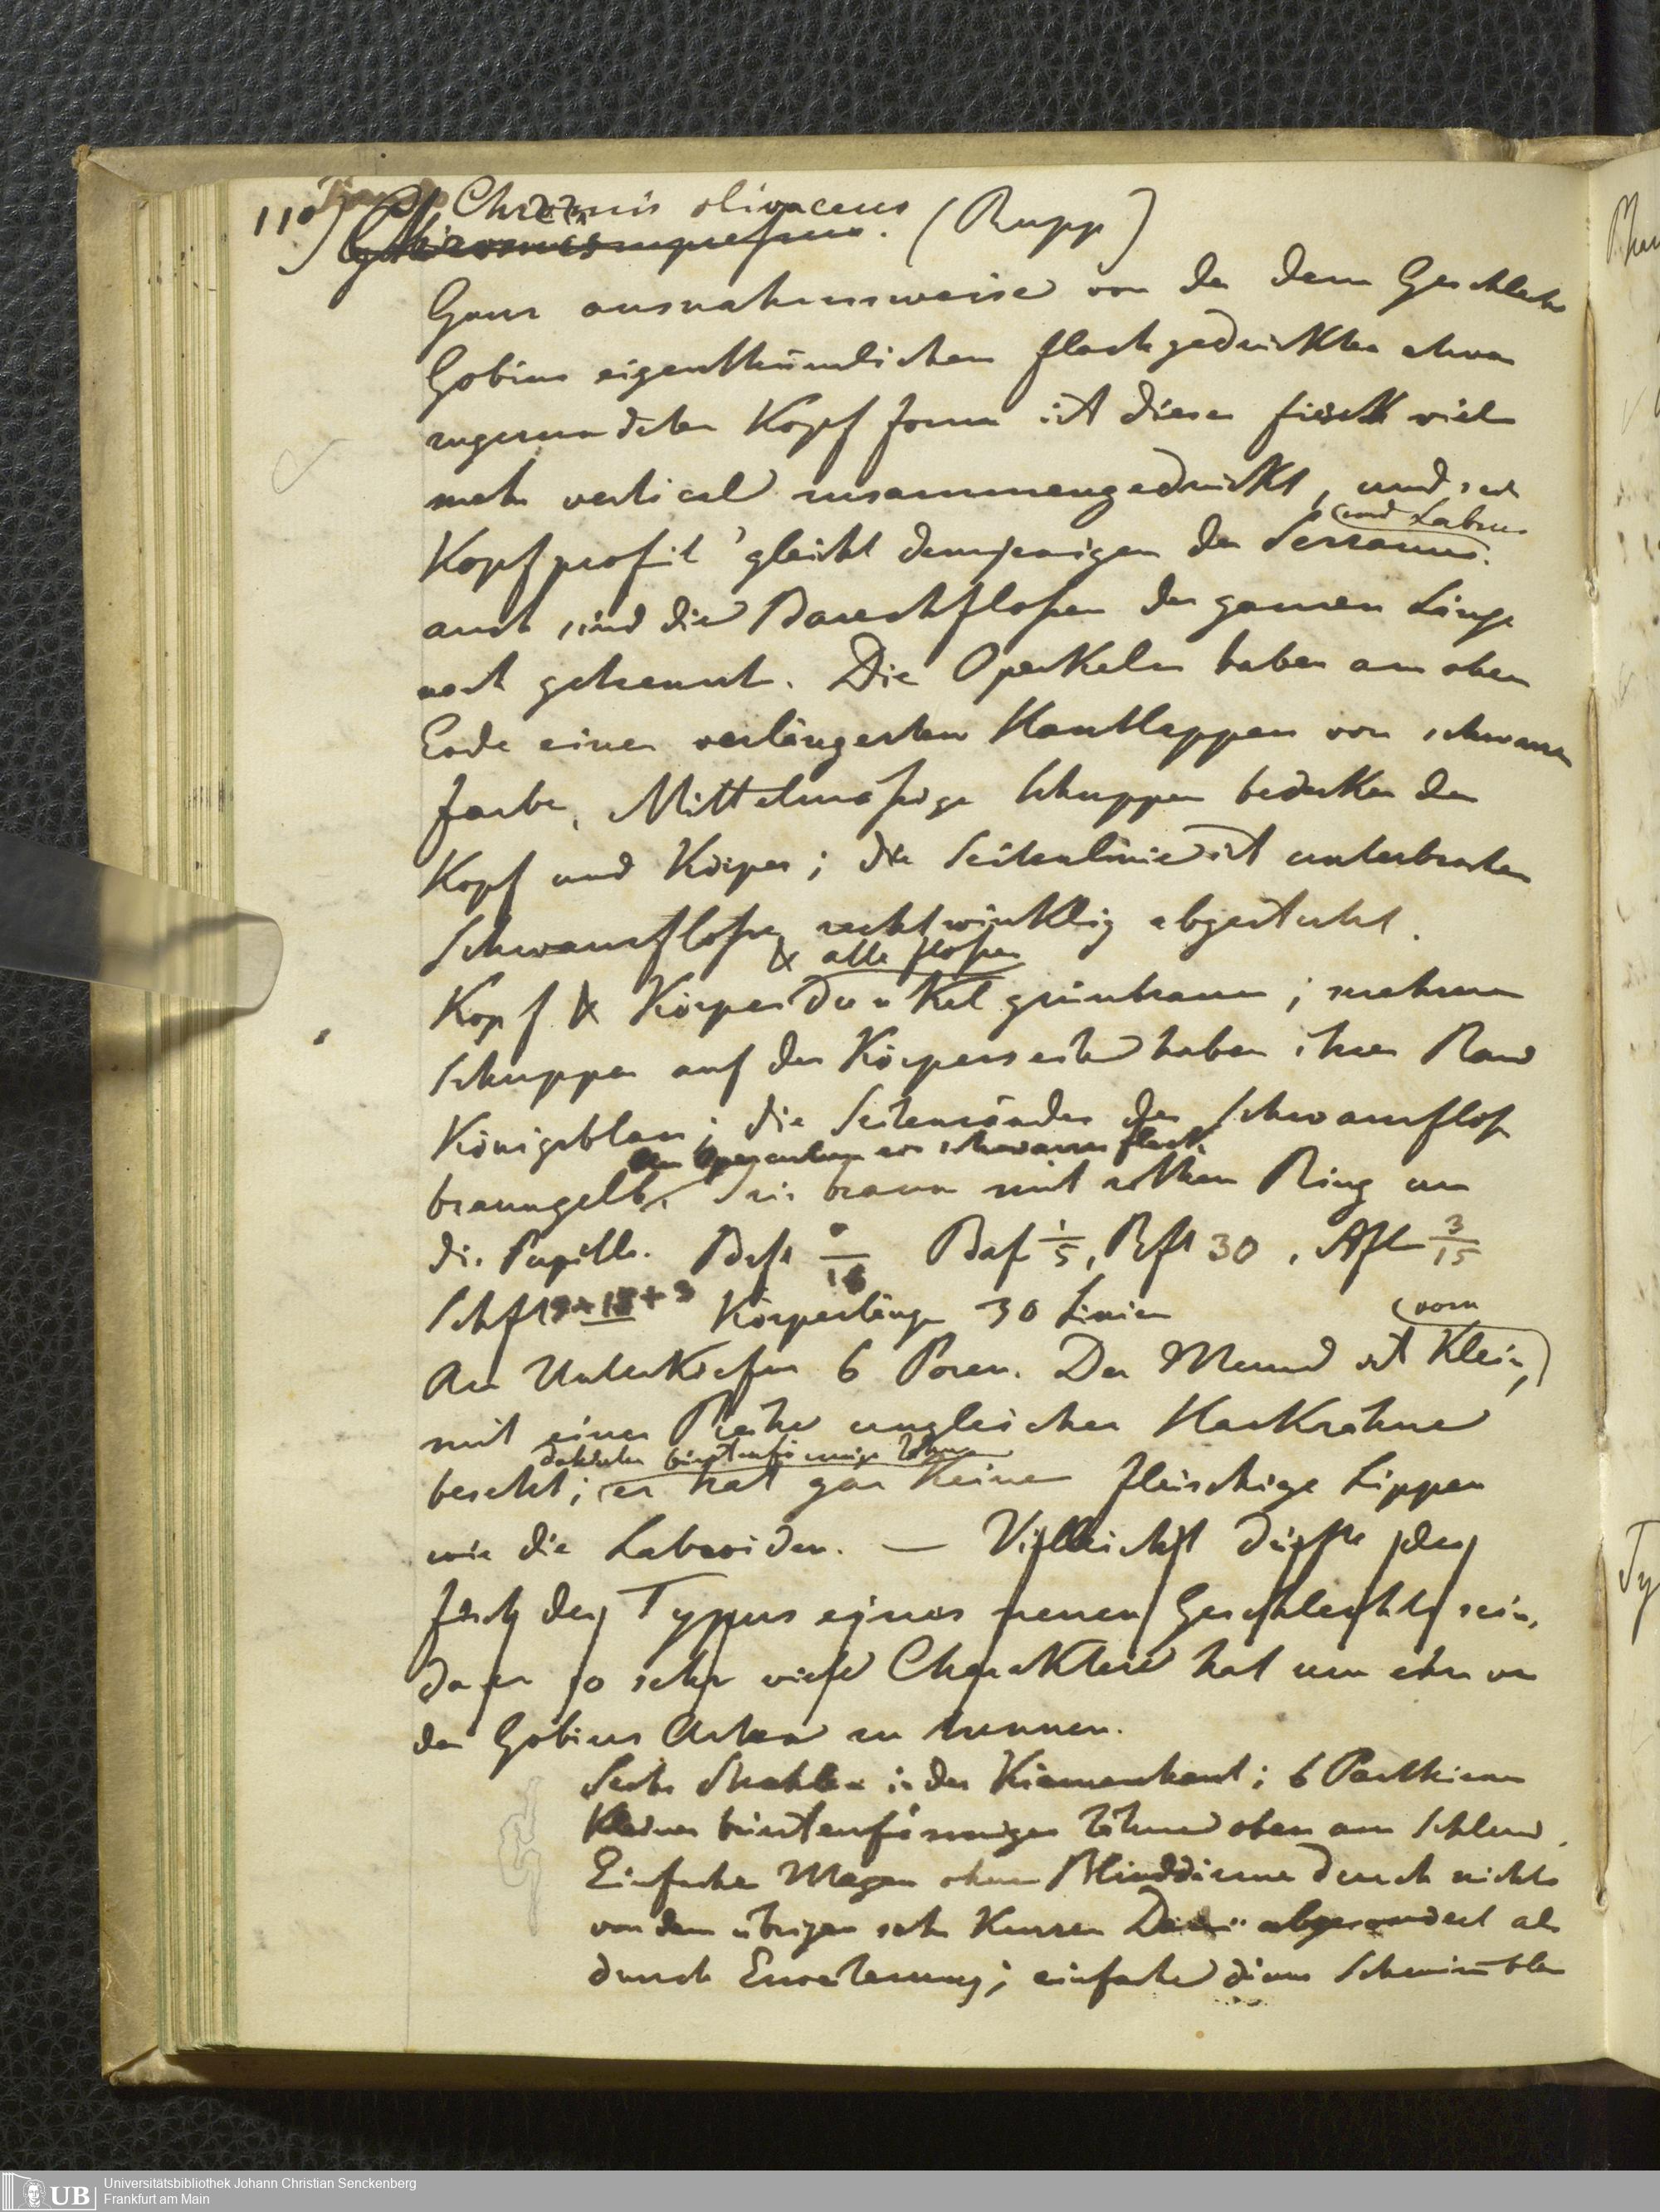 110) Chromis olivaceus (Rupp)
Ganz ausnahmsweise von der dem Geschlecht
Gobius eigenthümlichen flachgedrückten etwas
zugerundeten Kopf form ist dieser fisch viel
mehr vertical zusammengedrückt, und sein
(und Labrus
Kopfprofil gleicht demjenigen der Serranus.
auch sind die Bauchflossen der ganzen Länge
nach getrennt. Die Operkeln haben am oben
Ende einen verlängerten Hautlappen von schwarzer
farbe, Mittelmäßige Schuppen bedecken den
Kopf und Körper; die Seitenlinie ist unterbrochen
Schwanzflosse rechtwinklig abgestutzt.
& alle flossen
Kopf & Körper dunkel grünbraun; mehrere
Schuppen auf der Körperseite haben ihren Rand
Königsblau; die Seitenränder der Schwanzfloss
am Operculum ein schwarzer fleck
braungelb. Iris braun mit rothem Ring um
die Pupille. Baf 1/5, Rfl 30, Afl 3/15
Schfl Körperlänge 30 Linien
(vorn
Am Unterkiefer 6 Poren. Der Mund ist Klein,)
mit einer Reihe ungleicher Hackzähne
dahinter bürstenförmige Zähne
besetzt; er hat gar keine fleischige Lippen
wie die Labroiden. — Vielleicht dürfte der
fisch der Typus eines neuen Geschlechts sein,
da er so sehr viele Charaktere hat um ihn von
den Gobius Arten zu trennen.
Sechs Strahlen in der Kiemenhaut; 6
Kleine bürstenförmige Zähne oben am Schlund.
Einfacher Magen ohne Blinddärme durch nichts
von dem übrigen sehr Kurzen abgesondert als
durch Erweiterung; einfache dünne Schwimmblase
Universitätsbibliothek Johann Christian Senckenberg
Frankfurt am Main
UB